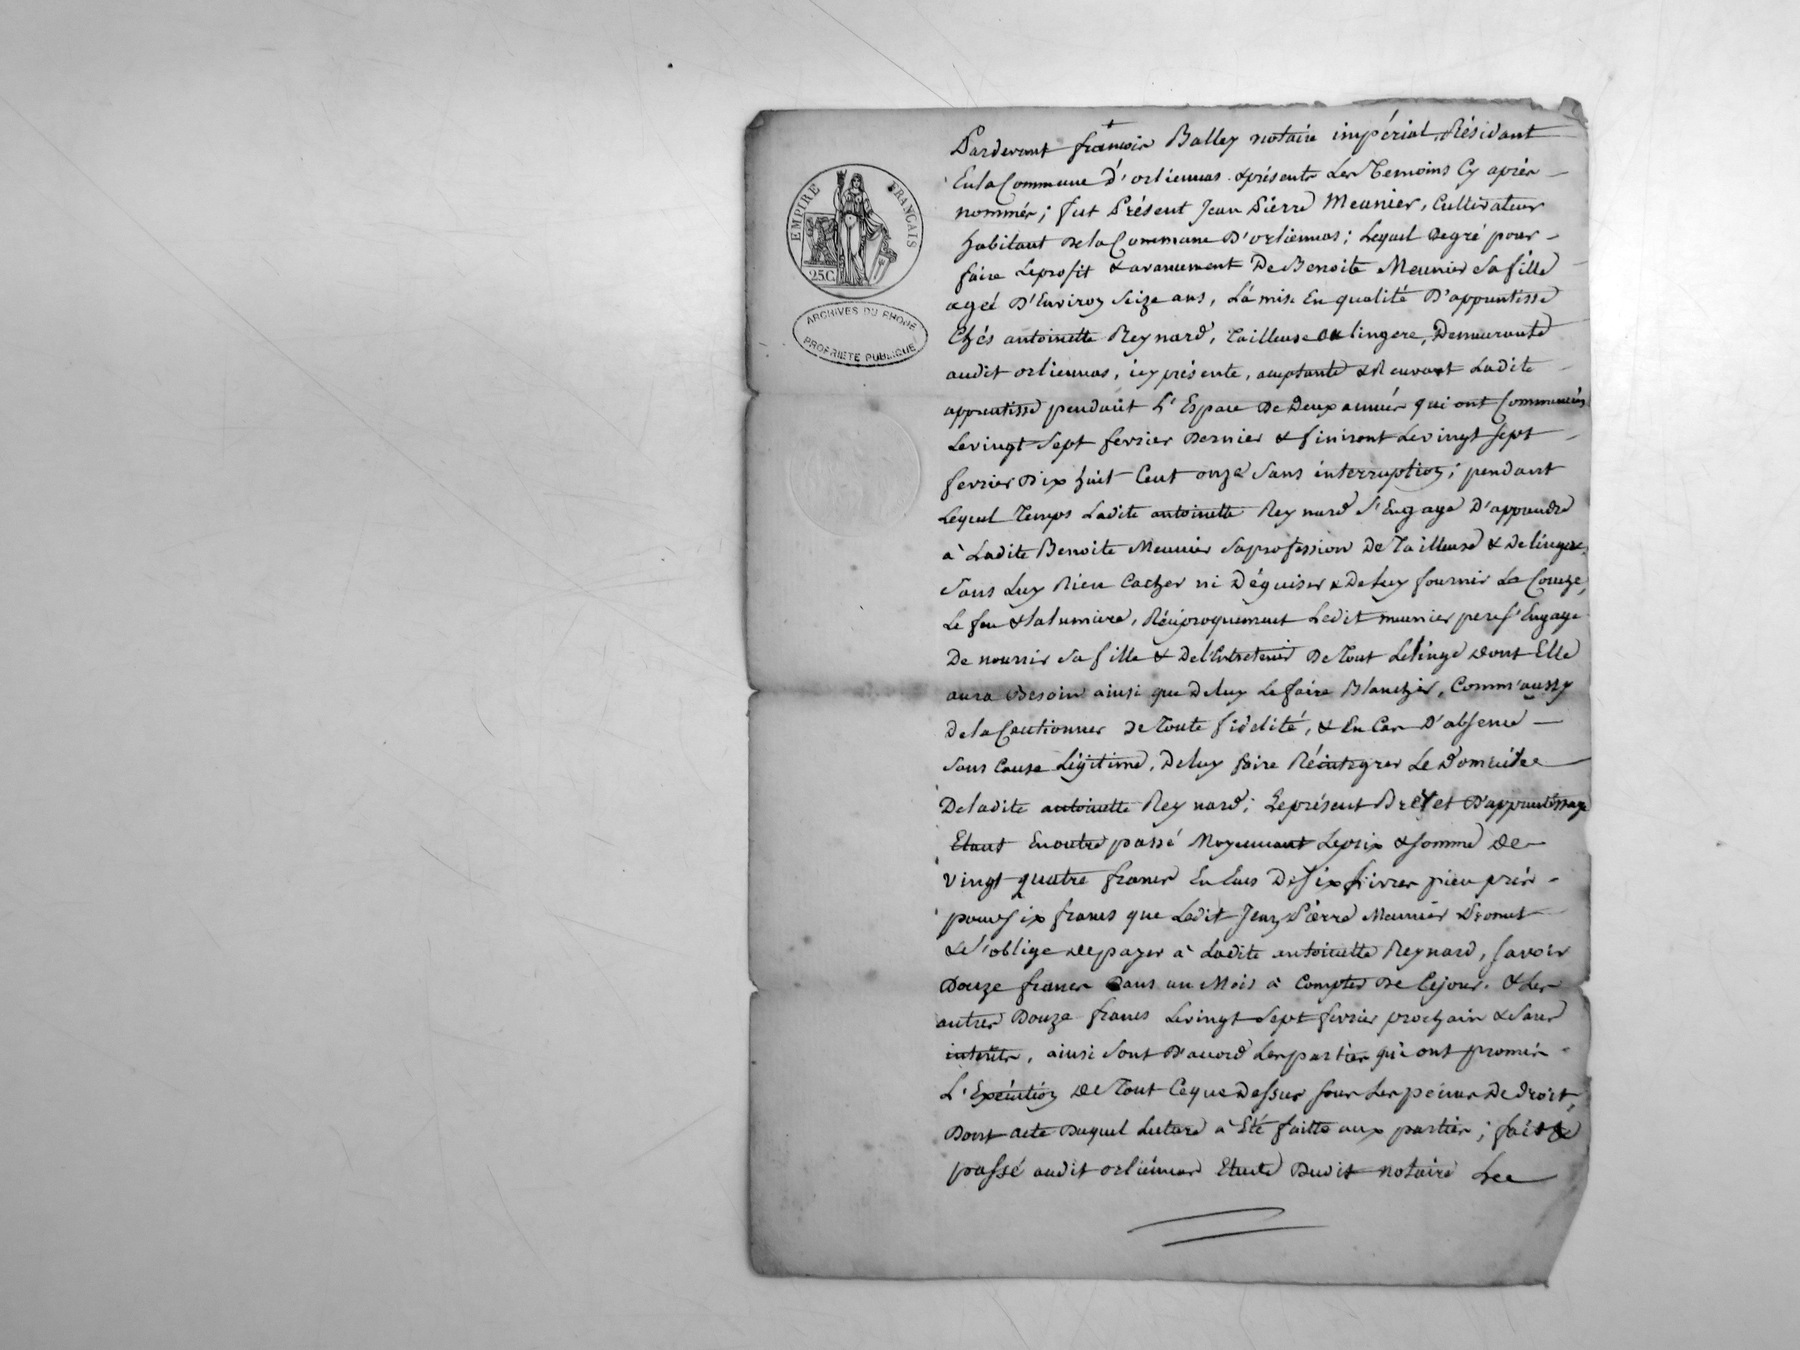 EMPIRE FRANÇAIS
25C.
ARCHIVES DU RHONE
PROPRIETE PUBLIQUE
Pardevant françois Balley notaire impérial, Résidant
En la Commune d'orliennas & présents Les Temoins Cy après
nommés; fut Présent Jean Pierre Meunier, Cultivateur
habitant de la Commune D'orliennas; Lequel de gré pour
faire Le profit & avancement De Benoite Meunier Sa fille
agée D'Environ Seize ans, L'a mise En qualité D'apprentisse
Chés antoinette Reynard, Tailleuse ou lingere, Demeurante
audit orliennas, icy présente, acceptante & Recevant Ladite
apprentisse pendant L'Espace De Deux années qui ont Commencées
Le vingt Sept fevrier Dernier & finiront Le vingt Sept
fevrier Dix huit Cent onze Sans interruption; pendant
Lequel Temps Ladite antoinette Reynard S'Engage D'apprendre
à Ladite Benoite Meunier Sa profession De Tailleuse & De lingere,
Sans Luy Rien Cacher ni Déguiser & De Luy fournir La Couche,
Le feu & la lumiere, Réciproquement Ledit meunier pere S'Engage
De nourrir Sa fille & De l'Entretenir De Tout Le linge dont Elle
aura Besoin ainsi que De luy Le faire Blanchir, Comm'aussy
De la Cautionner de Toute fidelité, & En Cas D'absence
Sans Cause Légitime, De luy faire Réintegrer Le Domicile
De ladite antoinette Reynard; Le présent Brevet D'apprentissage
Etant En outre passé Moyennant Le prix & Somme de
vingt quatre francs En Ecus De Six livres piece pris
pour Six francs que Ledit Jean Pierre Meunier Promet
& S'oblige de payer à Ladite antoinette Reynard, Savoir
Douze francs Dans un Mois à Compter De Ce jour, & Les
autres Douze francs Le vingt Sept fevrier prochain & Sans
intérêts, ainsi Sont D'accord Les parties qui ont promis
L'Exécution de Tout Ce que Dessus Sous Les peines De droit,
Dont acte Duquel Lecture a Eté faitte aux parties; fait &
passé audit orliennas Etude Dudit notaire Le